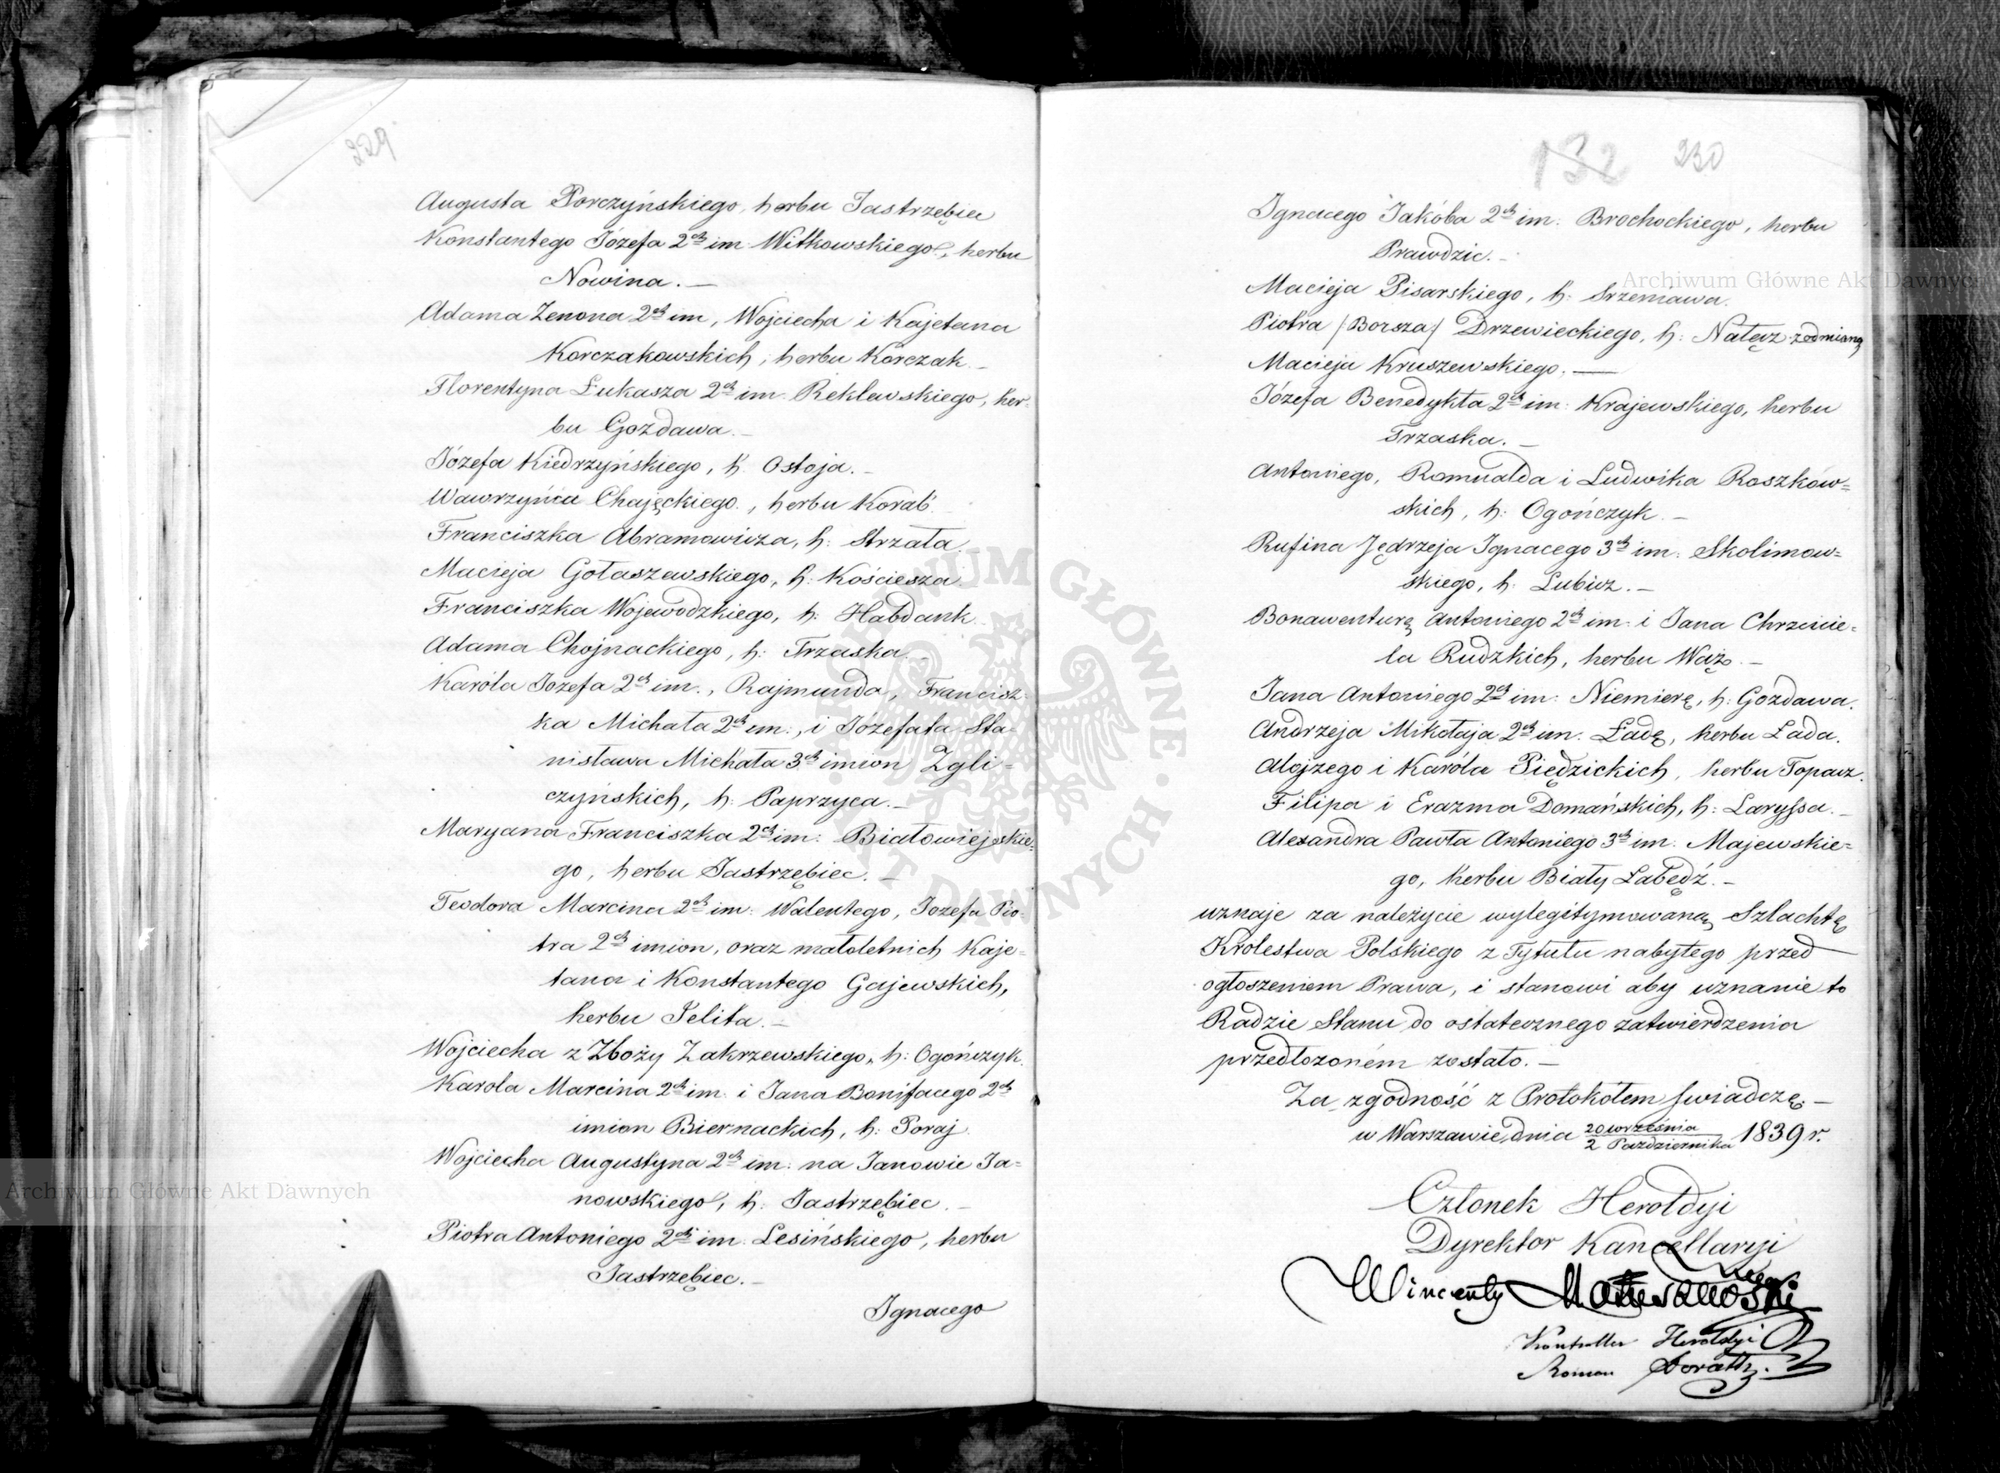 229
Augusta Porczyńskiego, herbu Jastrzębiec
Konstantego Józefa 2ch im. Witkowskiego, herbu
Nowina. —
Adama Zenona 2ch im, Wojciecha i Kajetana
Korczakowskich, herbu Korczak. —
Florentyna Łukasza 2ch im. Reklewskiego, her-
bu Gozdawa. —
Józefa Kiedrzyńskiego, h. Ostoja. —
Wawrzyńca Chajęckiego, herbu Korab.
Franciszka Abramowicza, h: Strzała.
Macieja Gołaszewskiego, h: Kościesza
Franciszka Wojewodzkiego, h: Habdank
Adama Chojnackiego, h: Trzaska. —
Karóla Jozefa 2ch im., Rajmunda, Francisz-
ka Michała 2ch im:, i Józefata Sta-
nisława Michała 3ch imion Zgli-
czyńskich, h: Paprzyca. —
Maryana Franciszka 2ch im: Białowiejskie-
go, herbu Jastrzębiec. —
Teodora Marcina 2ch im: Walentego, Jozefa Pio-
tra 2ch imion, oraz małoletnich Kaje-
tana i Konstantego Gajewskich,
herbu Jelita. —
Wojciecha z Zboży Zakrzewskiego, h: Ogończyk.
Karola Marcina 2ch im: i Jana Bonifacego 2ch
imion Biernackich, h: Poraj
Wojciecha Augustyna 2ch im: na Janowie Ja-
nowskiego, h: Jastrzębiec. —
Piotra Antoniego 2ch im. Lesińskiego, herbu
Jastrzębiec. —
Ignacego
132 230
Ignacego Jakóba 2ch im: Brochockiego, herbu
Prawdzic. —
Macieja Pisarskiego, h: Srzeniawa.
Piotra /Borsza/ Drzewieckiego, h: Nałęcz z odmianą
Macieja Kruszewskiego. —
Józefa Benedykta 2ch im: Krajewskiego, herbu
Trzaska. —
Antoniego, Romualda i Ludwika Roszków=
skich, h: Ogończyk. —
Rufina Jędrzeja Ignacego 3ch im: Skolimow=
skiego, h: Lubicz. —
Bonawenturę Antoniego 2ch im: i Jana Chrzcicie-
la Rudzkich, herbu Wąż. —
Jana Antoniego 2ch im: Niemierę, h: Gozdawa.
Andrzeja Mikołaja 2ch im. Ładę, herbu Łada.
Alojzego i Karóla Piędzickich, herbu Topacz.
Filipa i Erazma Domańskich, h: Laryssa. —
Alexandra Pawła Antoniego 3ch im: Majewskie=
go, herbu Biały Łabędź. —
uznaje za należycie wylegitymowaną Szlachtę
Krolestwa Polskiego z Tytułu nabytego przed
ogłoszeniem Prawa, i stanowi aby uznanie to
Radzie Stanu do ostatecznego zatwierdzenia
przedłożoném zostało. —
Za zgodność z Protokołem świadczę —
w Warszawie, dnia 20 września / 2 Października 1839 r.
Członek Herołdyi
Dyrektor Kancellaryi
Wincenty Matuszewski
Kontroller Heroldyi
Roman
Archiwum Główne Akt Dawnych
Archiwum Główne Akt Dawnych
ARCHIWUM GŁÓWNE · AKT DAWNYCH ·